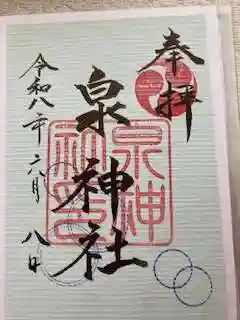 奉拝
泉神社
泉神社印
令和八年六月八日